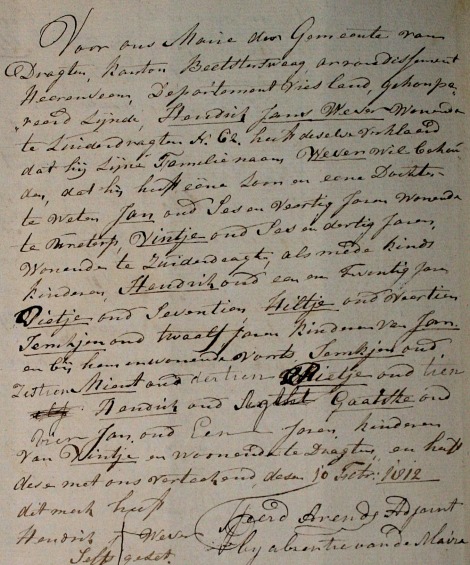 Voor ons Maire der Gemeente van
Dragten, kanton Beetsterzwaag arrondissement
Heerenveen, Departement Vriesland, gekompa-
reerd Zijnde Hendrik Jans Wever Wonende
te Zuiderdragten N. 62. heeft deselve Verklaard
dat hij Zijne Familie naam Wever wil behou
den, dat hij heeft eene Zoon en eene Dochter
te weten Jan oud Ses en Veertig Jaren Wonende
te Ureterp, Vintje oud Ses en dertig Jaren,
Wonende te Zuiderdragten, als mede kinds
kinderen, Hendrik oud een en Twentig Jaar
Pietje oud Seventien, Hiltje oud Veertien
Jemkjen oud twaalf Jaren kinderen van Jan
en bij hem enwonende voorts, Jemkjen oud
Zestien Mient oud dertien Pietje oud tien
Hendrik oud Agt Gaatske oud
vier Jan oud Een Jaren, kinderen
Van Vintje en woonende te Dragten, en heeft
dese met ons verteekend desen 10 Febr: 1812
dit merk heeft
Hendrik J Wever
Self gedet.
Sjoerd Arends Adjoint
by absentie van de Maire